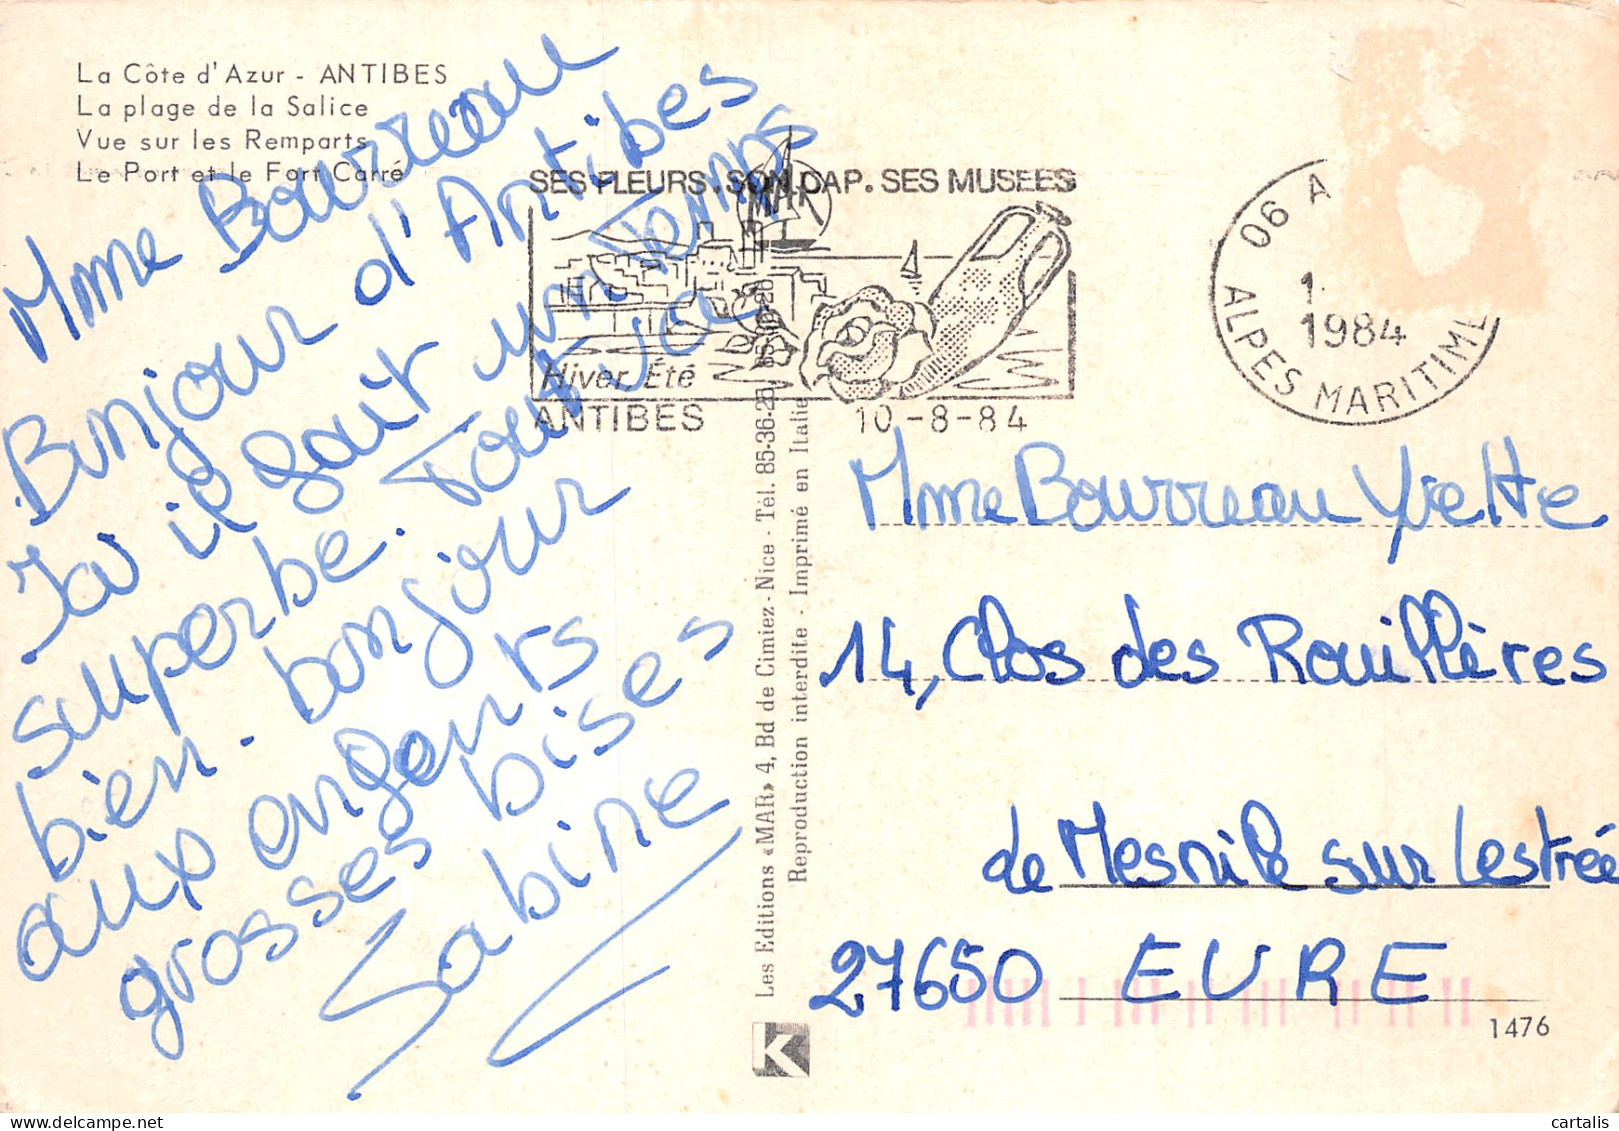 La Côte d'Azur - ANTIBES
La plage de la Salice
Vue sur les Remparts
Le Port et le Fort Carré
Mme Bourreau
Bonjour d'Antibes
Ici il fait un Temps
superbe. Tout va
bien. bonjour
aux enfants
grosses bises
Sabine
SES FLEURS. SON CAP. SES MUSEES
MAR
Hiver, Été
ANTIBES 10-8-84
06 A
1.
1984
ALPES MARITIME
Les Editions «MAR» 4, Bd de Cimiez - Nice - Tél. 85-36-20
Reproduction interdite - Imprimé en Italie
Mme Bourreau Yvette
14, Clos des Rouillères
de Mesnile sur Lestrée
27650 EURE
K
1476
cartalis
delcampe.net